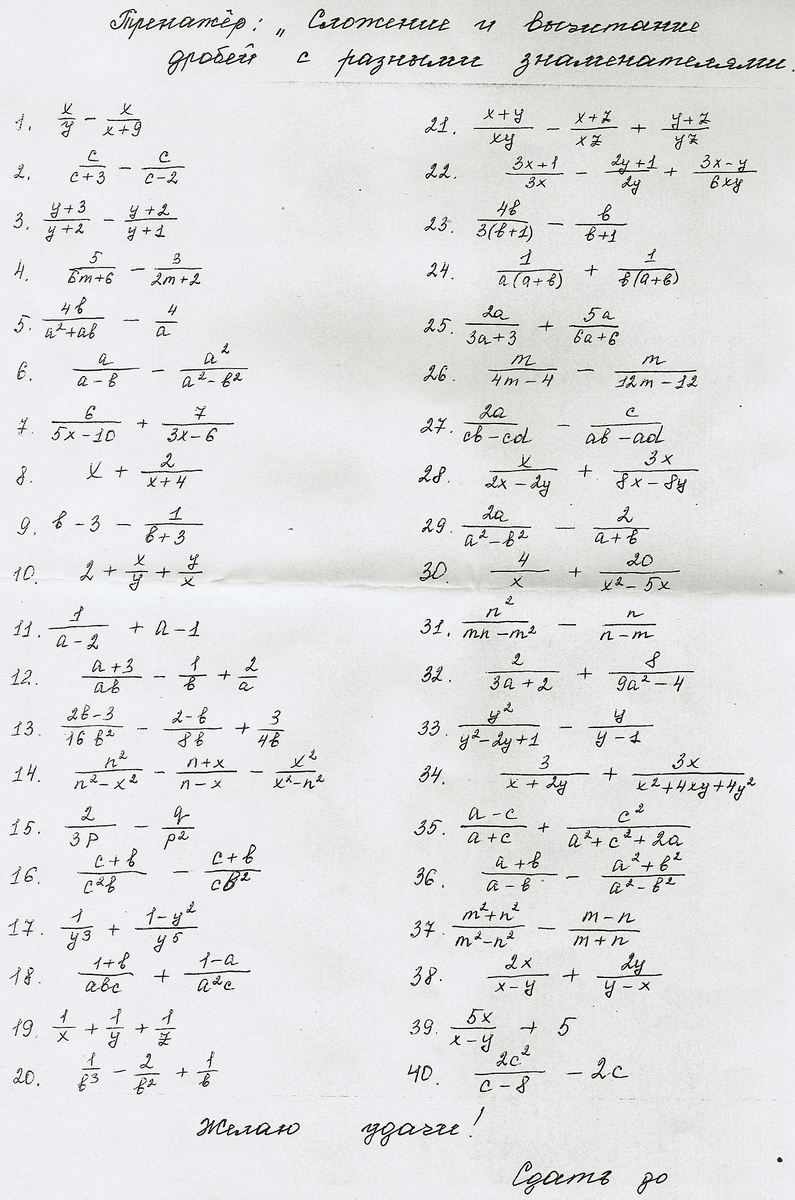 Тренажёр: „Сложение и вычитание
дробей с разными знаменателями.
1. x/y − x/(x+9)
2. c/(c+3) − c/(c−2)
3. (y+3)/(y+2) − (y+2)/(y+1)
4. 5/(6m+6) − 3/(2m+2)
5. 4b/(a²+ab) − 4/a
6. a/(a−b) − a²/(a²−b²)
7. 6/(5x−10) + 7/(3x−6)
8. x + 2/(x+4)
9. b−3 − 1/(b+3)
10. 2 + x/y + y/x
11. 1/(a−2) + a−1
12. (a+3)/(ab) − 1/b + 2/a
13. (2b−3)/(16b²) − (2−b)/(8b) + 3/(4b)
14. n²/(n²−x²) − (n+x)/(n−x) − x²/(x²−n²)
15. 2/(3p) − q/p²
16. (c+b)/(c²b) − (c+b)/(cb²)
17. 1/y³ + (1−y²)/y⁵
18. (1+b)/(abc) + (1−a)/(a²c)
19. 1/x + 1/y + 1/z
20. 1/b³ − 2/b² + 1/b
21. (x+y)/(xy) − (x+z)/(xz) + (y+z)/(yz)
22. (3x+1)/(3x) − (2y+1)/(2y) + (3x−y)/(6xy)
23. 4b/(3(b+1)) − b/(b+1)
24. 1/(a(a+b)) + 1/(b(a+b))
25. 2a/(3a+3) + 5a/(6a+6)
26. m/(4m−4) − m/(12m−12)
27. 2a/(cb−cd) − c/(ab−ad)
28. x/(2x−2y) + 3x/(8x−8y)
29. 2a/(a²−b²) − 2/(a+b)
30. 4/x + 20/(x²−5x)
31. n²/(mn−m²) − n/(n−m)
32. 2/(3a+2) + 8/(9a²−4)
33. y²/(y²−2y+1) − y/(y−1)
34. 3/(x+2y) + 3x/(x²+4xy+4y²)
35. (a−c)/(a+c) + c²/(a²+c²+2a)
36. (a+b)/(a−b) − (a²+b²)/(a²−b²)
37. (m²+n²)/(m²−n²) − (m−n)/(m+n)
38. 2x/(x−y) + 2y/(y−x)
39. 5x/(x−y) + 5
40. 2c²/(c−8) − 2c
Желаю удачи!
Сдать до